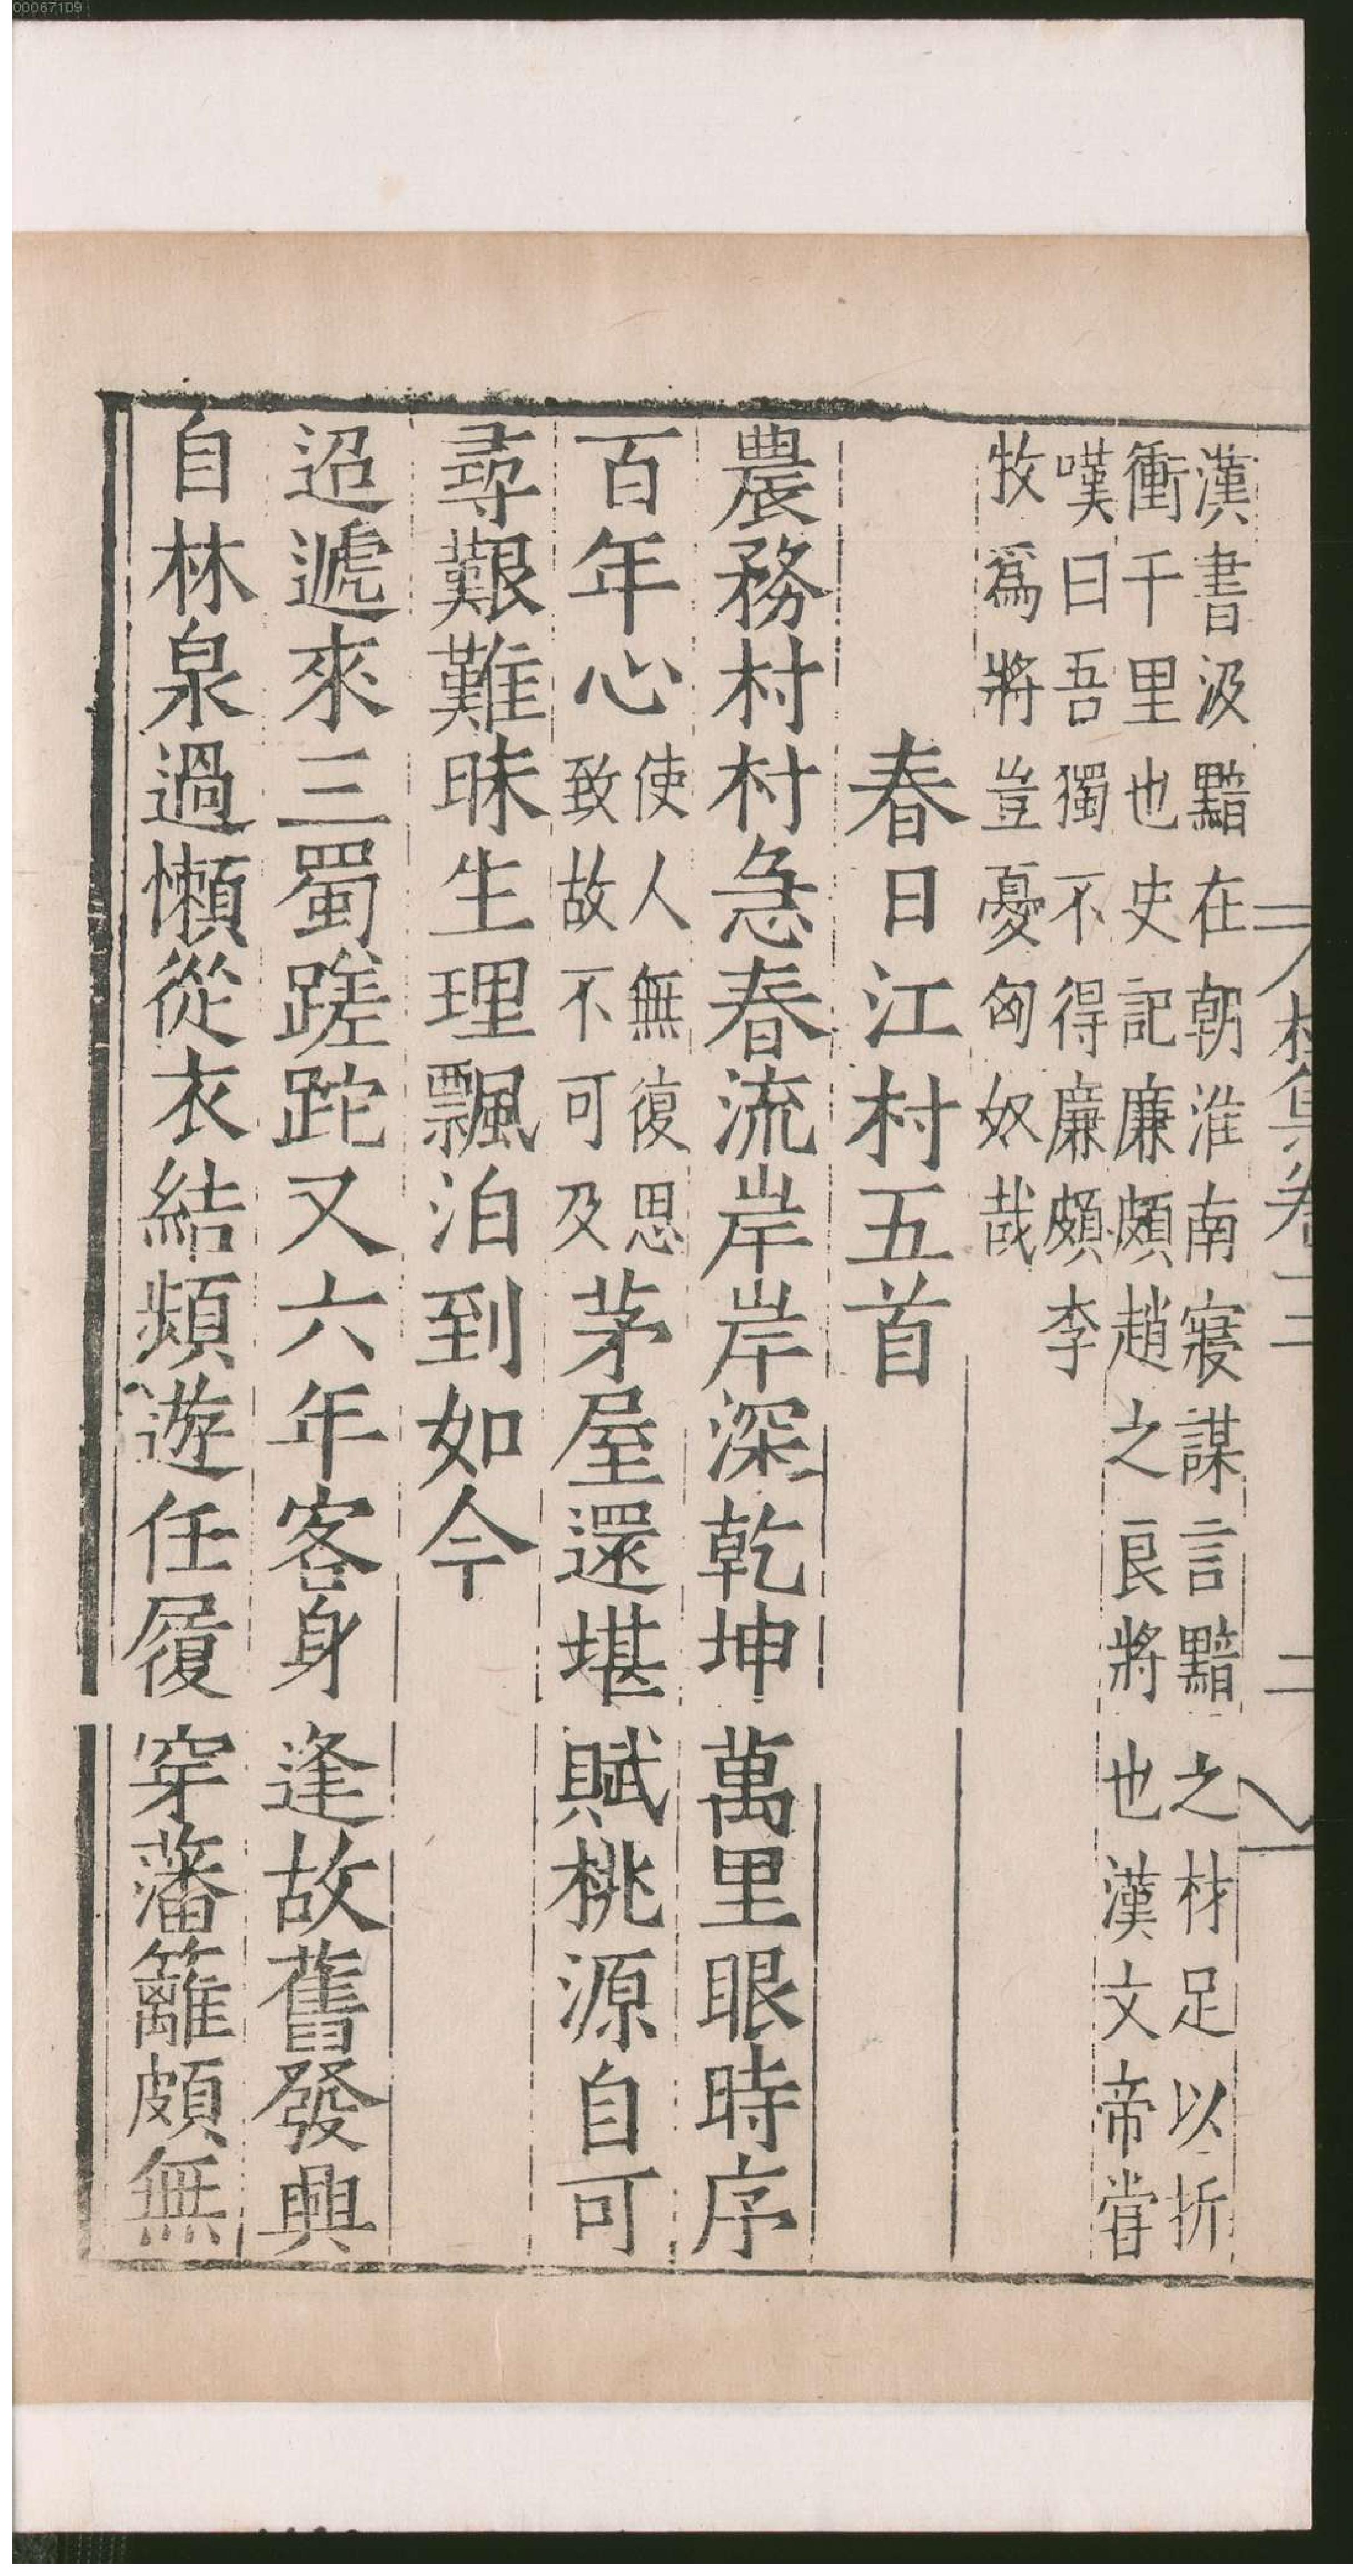 00067109
杜集卷二 二
漢書汲黯在朝淮南寢謀言黯之材足以折
衝千里也史記廉頗趙之良將也漢文帝嘗
嘆曰吾獨不得廉頗李
牧爲將豈憂匈奴哉
春日江村五首
農務村村急春流岸岸深乾坤萬里眼時序
百年心使人無復思致故不可及茅屋還堪賦桃源自可
尋艱難昧生理飄泊到如今
迢遞來三蜀蹉跎又六年客身逢故舊發興
自林泉過懶從衣結頻遊任履穿藩籬頗無